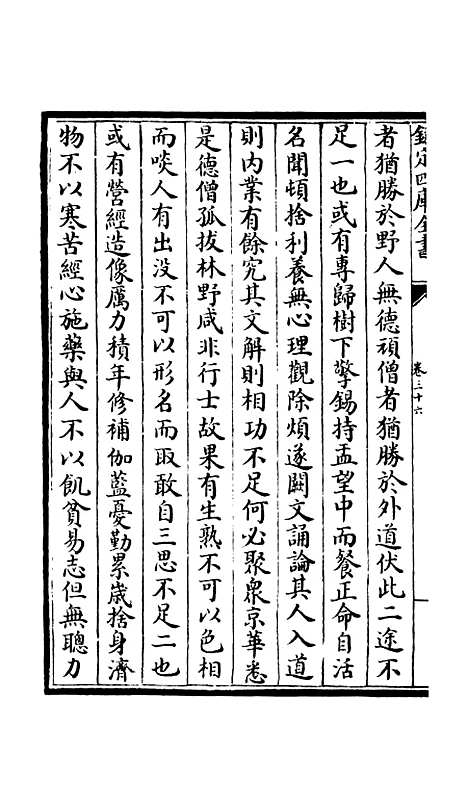 欽定四庫全書
卷三十六
者猶勝於野人無德頑僧者猶勝於外道伏此二途不
足一也或有專歸樹下擎錫持盂望中而餐正命自活
名聞頓捨利養無心理觀除煩遂闕文誦論其人入道
則内業有餘究其文解則相功不足何必聚衆京華悉
是德僧孤拔林野咸非行士故果有生熟不可以色相
而啖人有出没不可以形名而取敢自三思不足二也
或有營經造像厲力積年修補伽藍憂勤累歲捨身濟
物不以寒苦經心施藥與人不以飢貧易志但無聰力